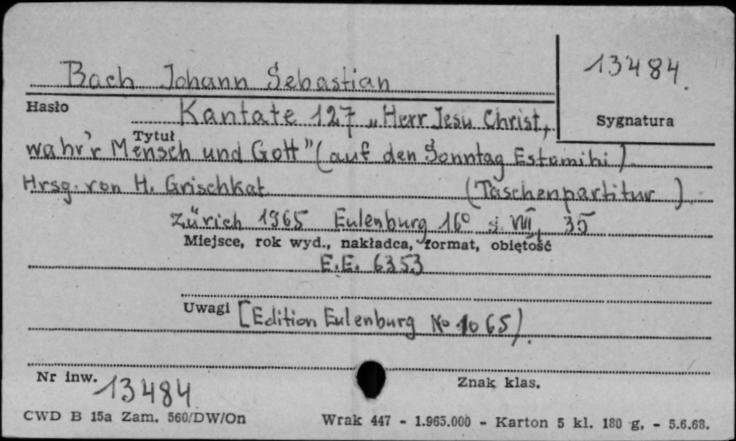 Bach Johann Sebastian
13484.
Hasło
Kantate 127 „Herr Jesu Christ,
Sygnatura
Tytuł
wahr'r Mensch und Gott" (auf den Sonntag Estomihi)
Hrsg. von H. Grischkat (Taschenpartitur)
Zürich 1965 Eulenburg 16° s. VIII, 35
Miejsce, rok wyd., nakładca, format, objętość
E.E. 6353
Uwagi [Edition Eulenburg No 1065).
Nr inw. 13484
Znak klas.
CWD B 15a Zam. 560/DW/On
Wrak 447 - 1.965.000 - Karton 5 kl. 180 g. - 5.6.68.